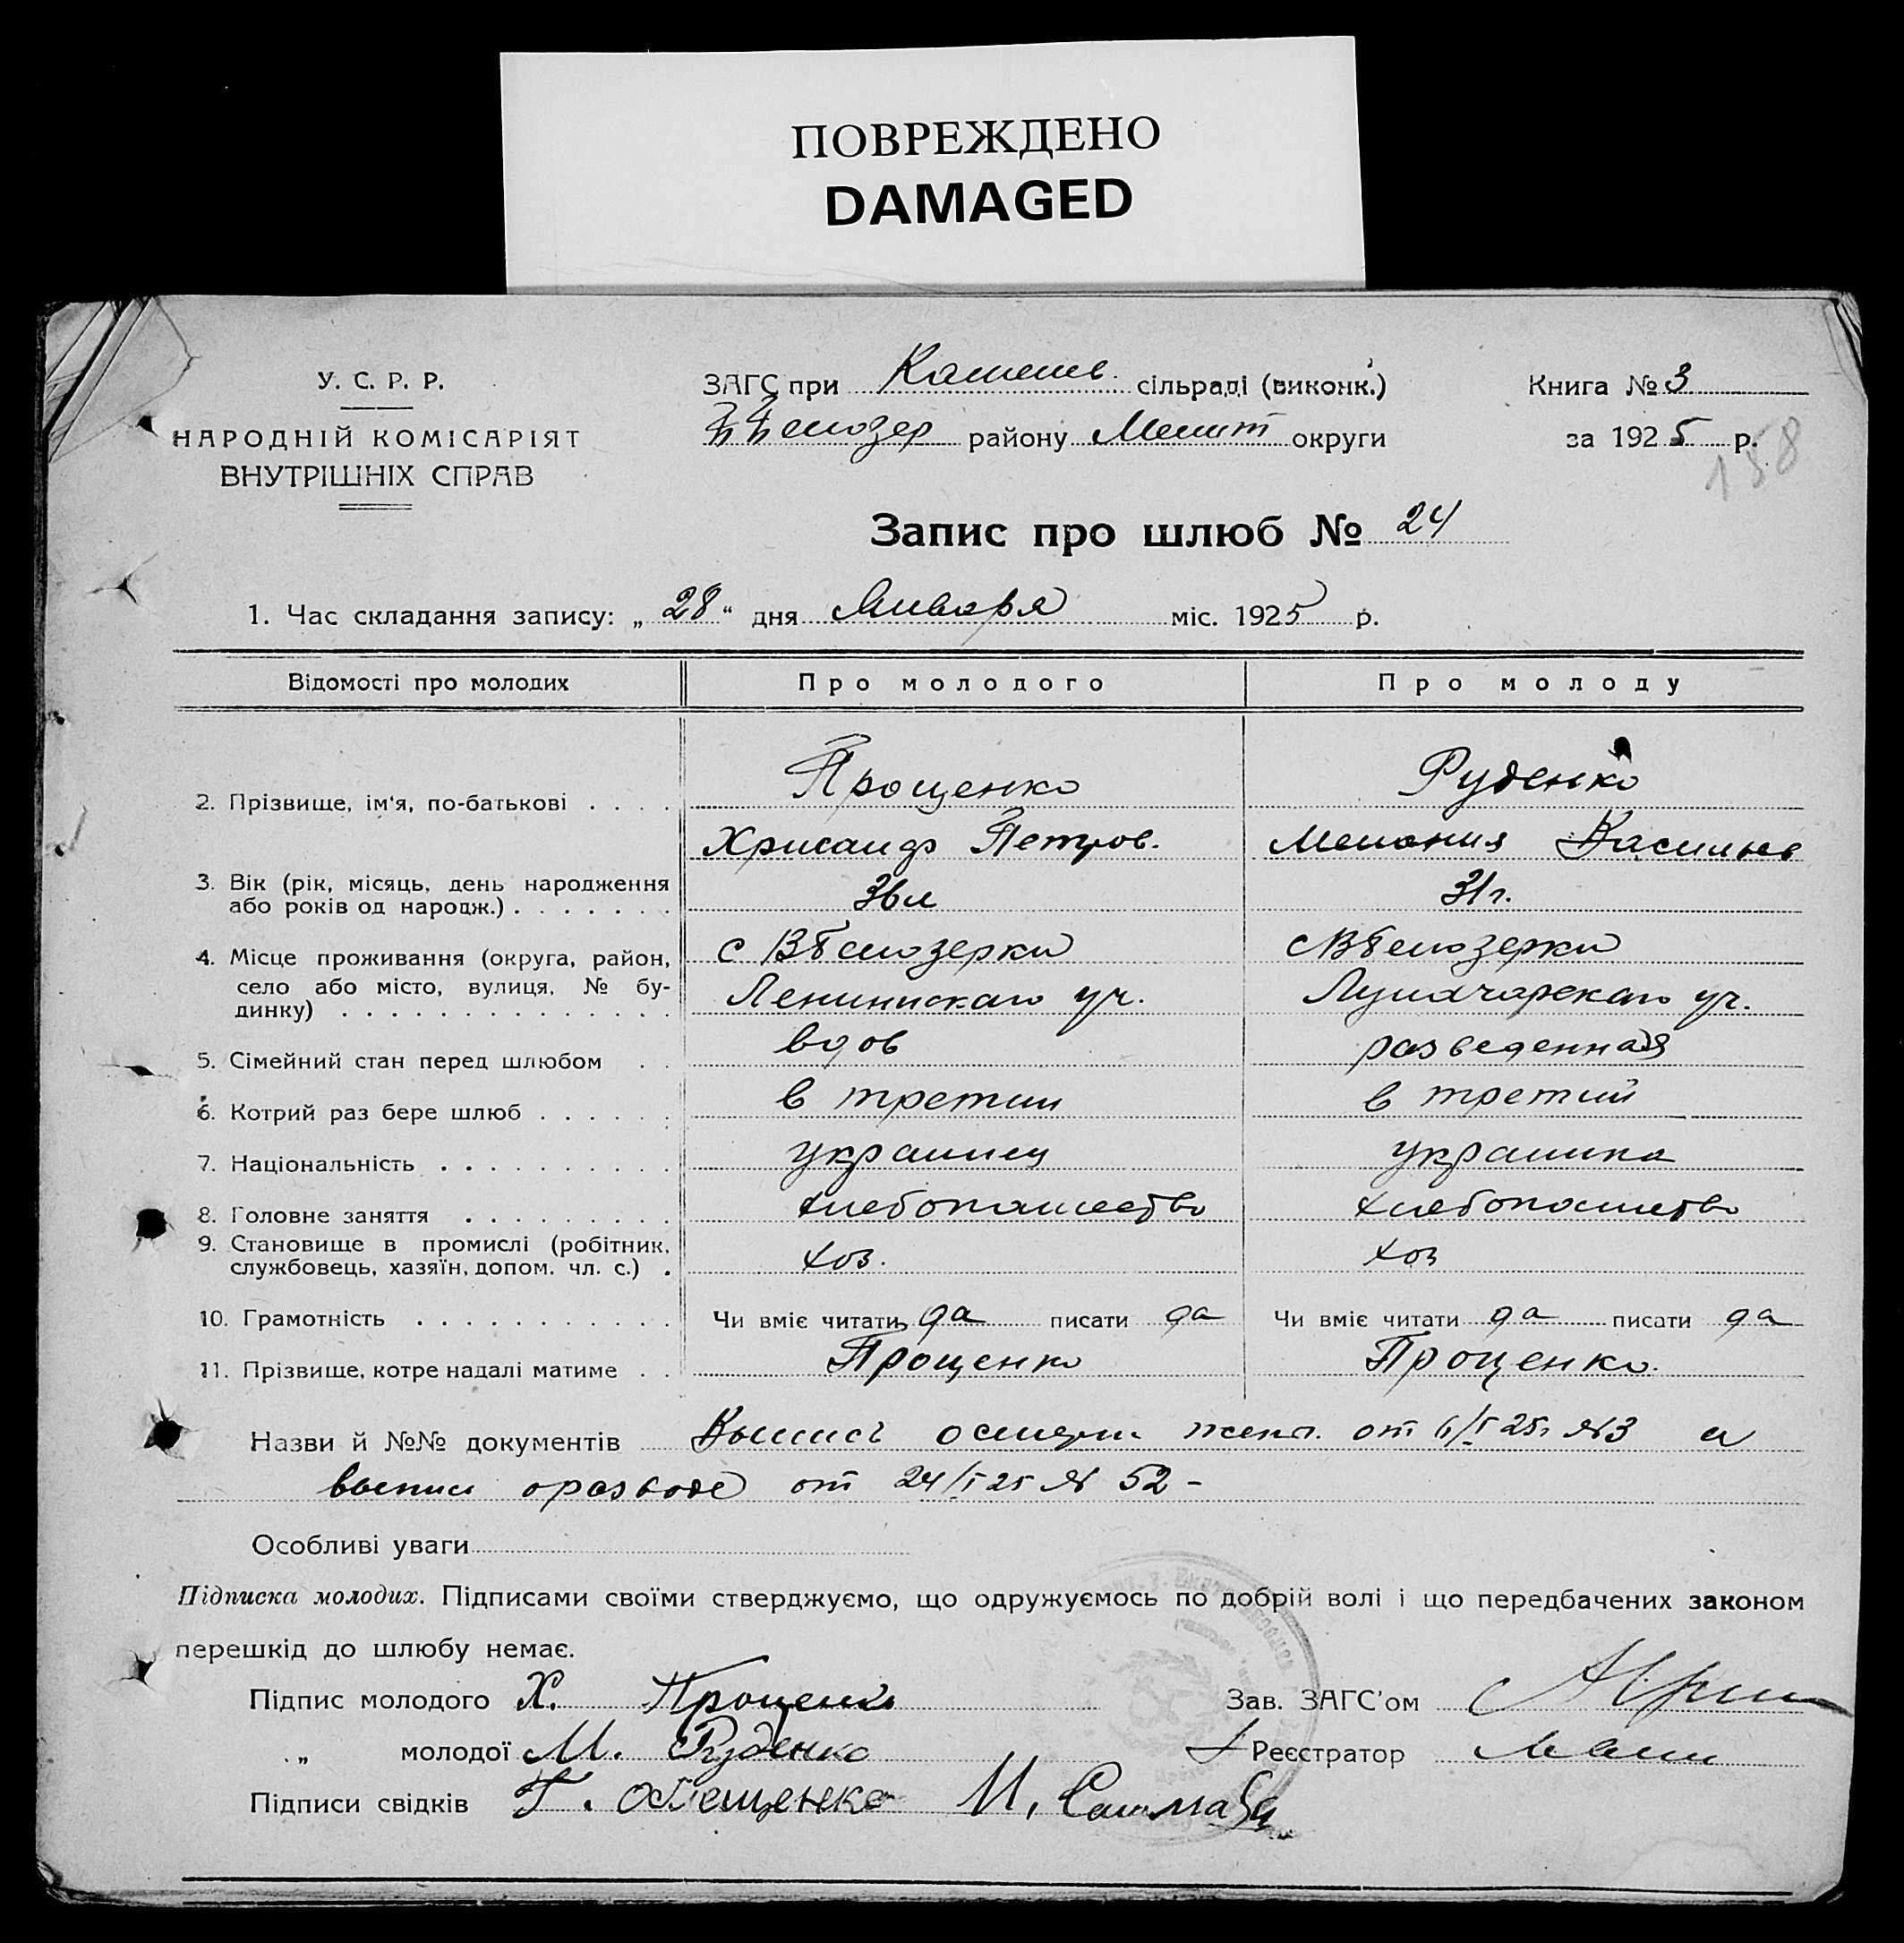 ПОВРЕЖДЕНО
DAMAGED
У. С. Р. Р.
НАРОДНІЙ КОМІСАРІЯТ
ВНУТРІШНІХ СПРАВ
ЗАГС при Каменев. сільраді (виконк.)
Белозер районy Мелит округи
Книга № 3
за 1925 р.
158
Запис про шлюб № 24
1. Час складання запису: „28“ дня Января міс. 1925 р.
Відомості про молодих Про молодого Про молоду
2. Прізвище, ім'я, по-батькові . . . . Проценко Руденко
Хрисанф Петров. Мелания Васильев
3. Вік (рік, місяць, день народження
або років од народж.) . . . . . . . 36 л 31 г.
4. Місце проживання (округа, район, с ВБелозерки с ВБелозерки
село або місто, вулиця, № бу-
динку) . . . . . . . . . . . . . . Ленинскаго уч. Луначарскаго уч.
5. Сімейний стан перед шлюбом . . вдов разведенная
6. Котрий раз бере шлюб . . . . . . в третии в третий
7. Національність . . . . . . . . . . украинец украинка
8. Головне заняття . . . . . . . . . хлебопашество хлебопашество
9. Становище в промислі (робітник,
службовець, хазяїн, допом. чл. с.) . хоз. хоз
10. Грамотність . . . . . . . . . . . Чи вміє читати да писати да Чи вміє читати да писати да
11. Прізвище, котре надалі матиме . . Проценко Проценко.
Назви й №№ документів Выпись о смерти жены. от 6/I 25г №3 и
выписи о разводе от 24/I 25 № 52 -
Особливі уваги
Підписка молодих. Підписами своїми стверджуємо, що одружуємось по добрій волі і що передбачених законом
перешкід до шлюбу немає.
Підпис молодого Х. Проценко Зав. ЗАГС'ом
„ молодої М. Руденко Реєстратор
Підписи свідків Г. И.